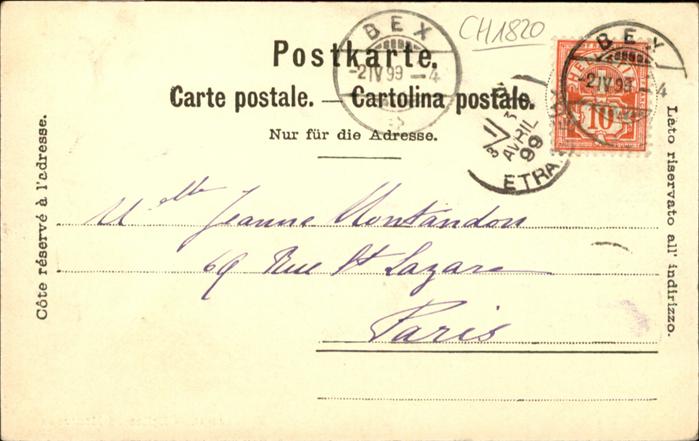 CH1820
BEX
-2IV99-4
Postkarte.
Carte postale. — Cartolina postale.
Nur für die Adresse.
BEX
-2IV99-4
HELVETIA
10
AVRIL
99
ETRA
Côte réservé à l'adresse.
Lato riservato all' indirizzo.
Mlle Jeanne Montandon
69 Rue St Lazare
Paris